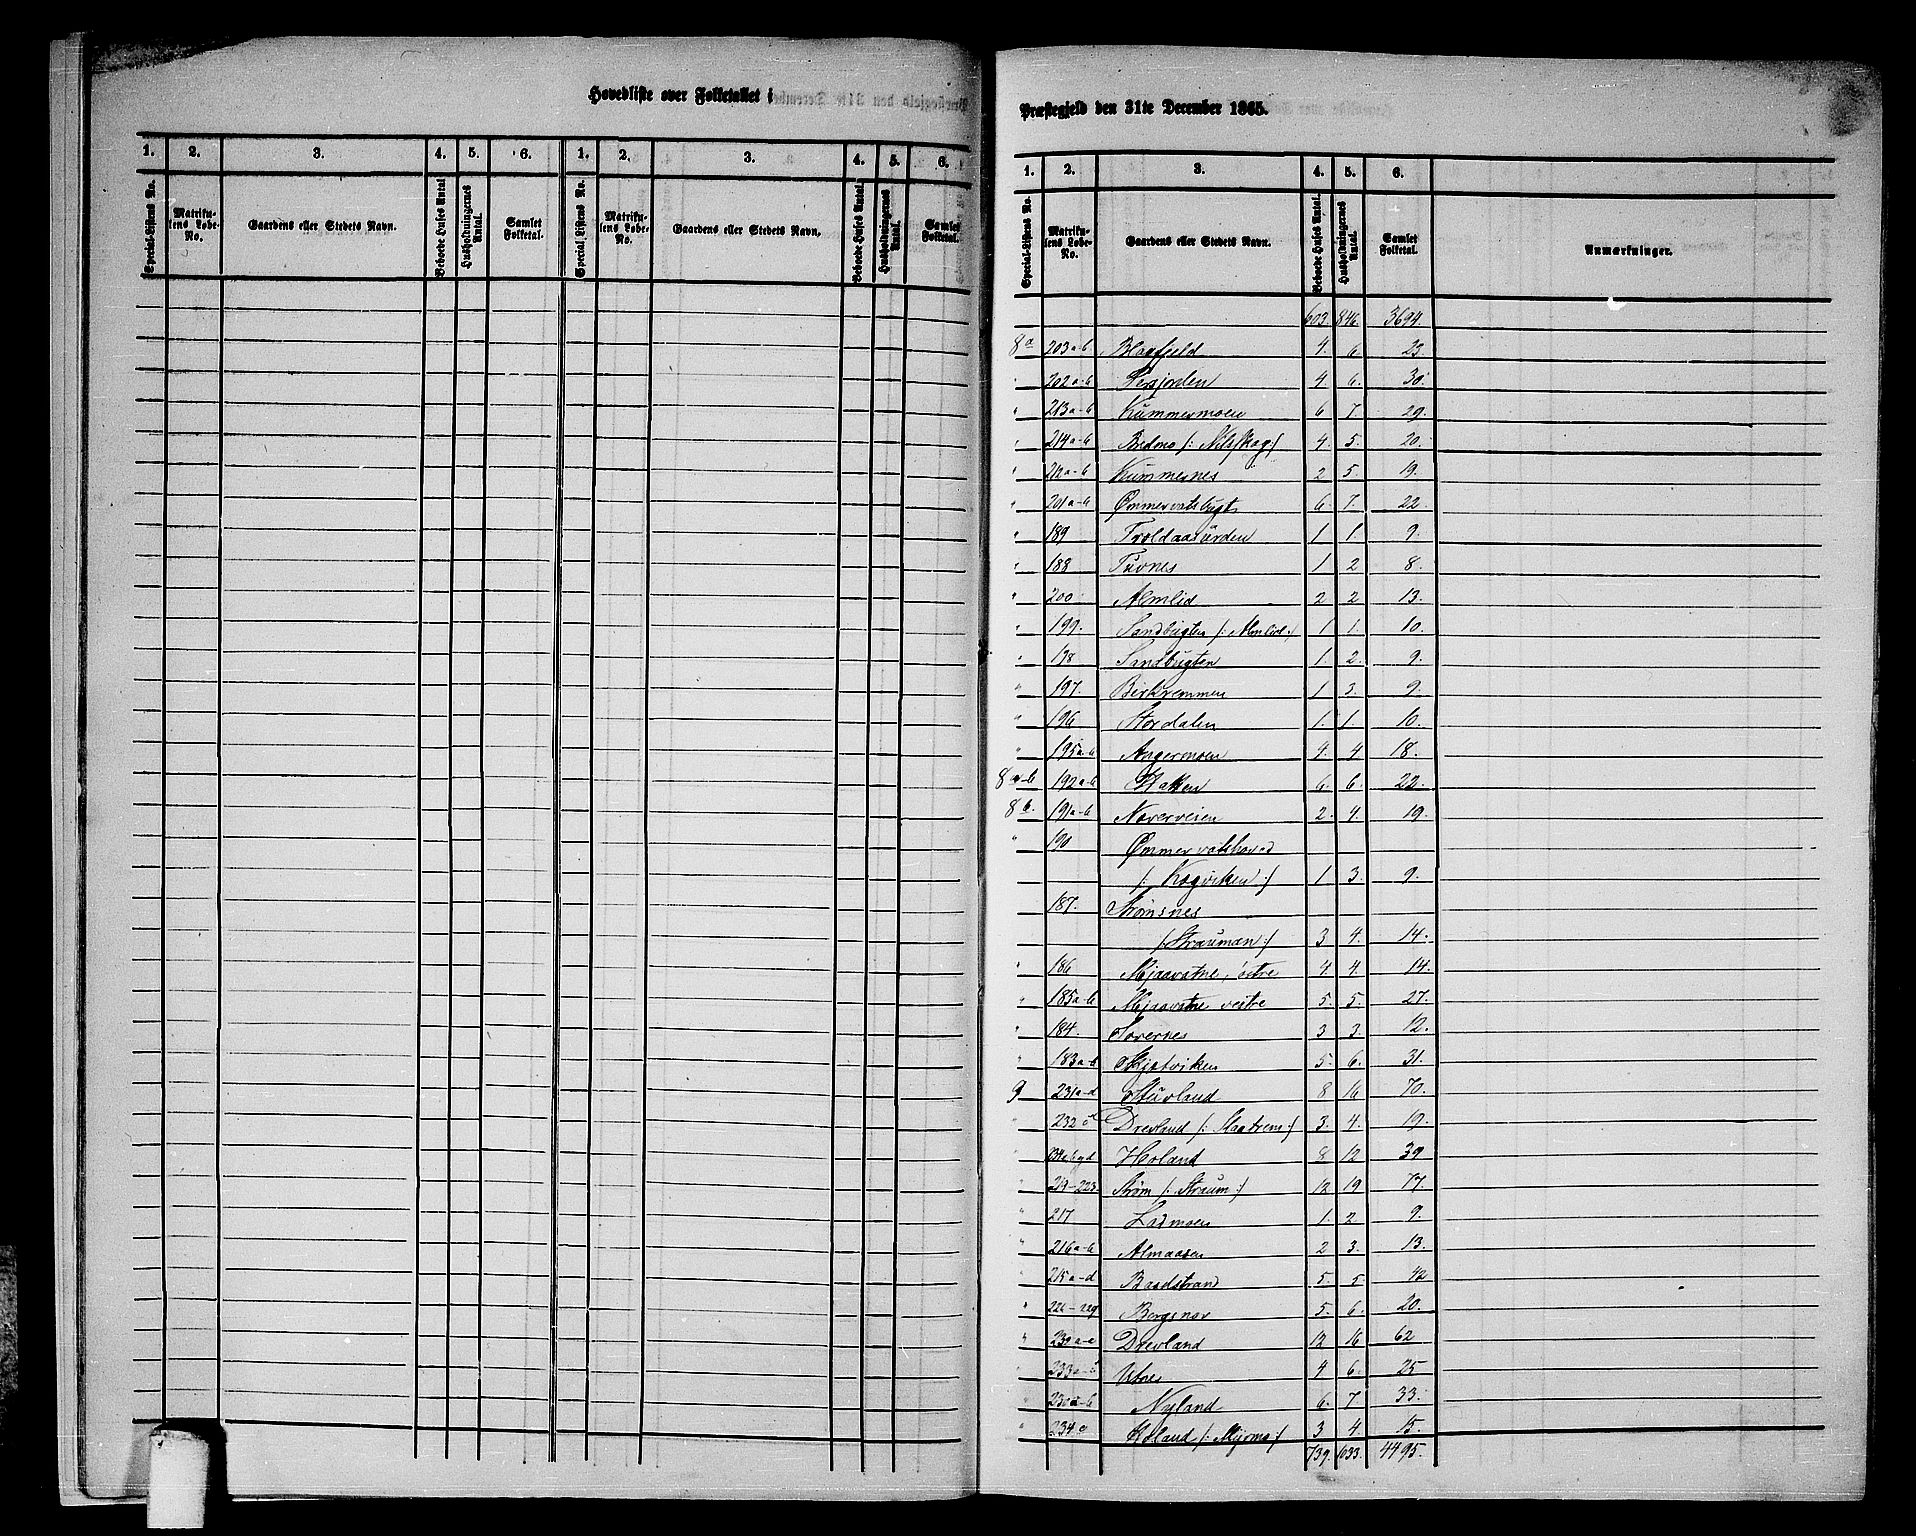 Hovedliste over Folketallet i
1. 2. 3. 4. 5. 6. 1. 2. 3. 4. 5. 6.
Special-Listens No. Matrikulens Løbe-No. Gaardens eller Stedets Navn. Beboede Huses Antal. Husholdningernes Antal. Samlet Folketal. Special-Listens No. Matrikulens Løbe-No. Gaardens eller Stedets Navn. Beboede Huses Antal. Husholdningernes Antal. Samlet Folketal.
Præstegjeld den 31te December 1865.
1. 2. 3. 4. 5. 6.
Special-Listens No. Matrikulens Løbe-No. Gaardens eller Stedets Navn. Beboede Huses Antal. Husholdningernes Antal. Samlet Folketal. Anmærkninger.
603. 846. 3694.
8a 203a-b Blaafjeld 4. 6 23.
" 202a-b 4. 6. 30.
" 213a-b Kummermoen 6 7. 29.
" 214a-b Bredmo /: Nilsskog :/ 4 5. 20.
" 212a-b Kummernes 2 5. 19.
" 201a-b Ømmervatsbugt 6 7. 22.
" 189 Troldaasurden 1 1. 9.
" 188 Tuvnes 1 2 8.
" 200 Almlid 2 2 13.
" 199. Sandbugten /: Almlid :/ 1. 1. 10.
" 198 Sandbugten 1. 2. 9.
" 197. Birkremmen 1 3. 9.
" 196 Stordalen 1. 1. 10.
" 195a-b Angermoen 4. 4. 18.
8a-b 192a-b Hatten 6. 6. 22.
8b. 191a-b Noverveien 2. 4. 19.
" 190 Ømmervatshoved
/: Kogviken :/ 1. 3. 9.
187. Strømsnes
/: Strauman :/ 3 4. 14.
" 186 Mjaavatne, østre 4. 4. 14.
" 185a-b Mjaavatne vestre 5. 5. 27.
" 184. Sovernes 3 3. 12.
" 183a-b Skjatviken 5. 6. 31.
9 231a-d Stuvland 8 16 70.
" 232 Drevland /: 3. 4. 19.
" Holand 8 12 39
" 219-223. Strøm /: Straum :/ 12 19 77.
" 217 Ladmoen 1. 2. 9.
" 216a-b Almaasen 2 3. 13.
" 215a-d Baadstrand 5. 5 42
" Bergsnov 5. 6. 20.
" Drevland 12 16 62
" 233a- Utnes 4 6. 25
" 230a-b Nyland 6. 7 33.
" 234 Holand /: Myrmo :/ 3 4. 15.
739. 1033. 4495.